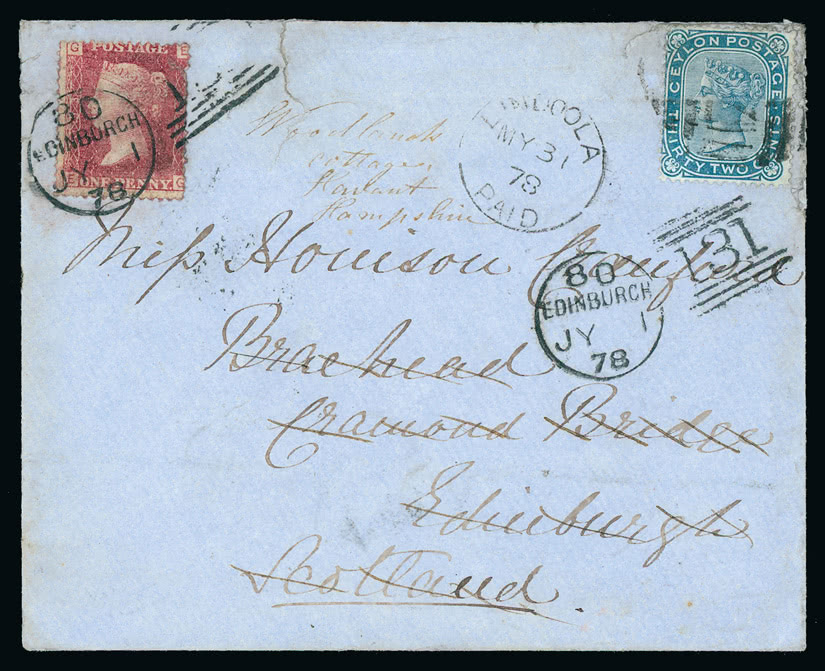 G E
POSTAGE
E G
ONE PENNY
80
EDINBURGH
JY 1
78
CEYLON POSTAGE
THIRTY TWO CENTS
LINDOOLA
MY 31
78
PAID
Woodlands
cottage
Havant
Hampshire
131
80
EDINBURGH
JY 1
78
Miss Howison Craufurd
Braehead
Cramond Bridge
Edinburgh
Scotland